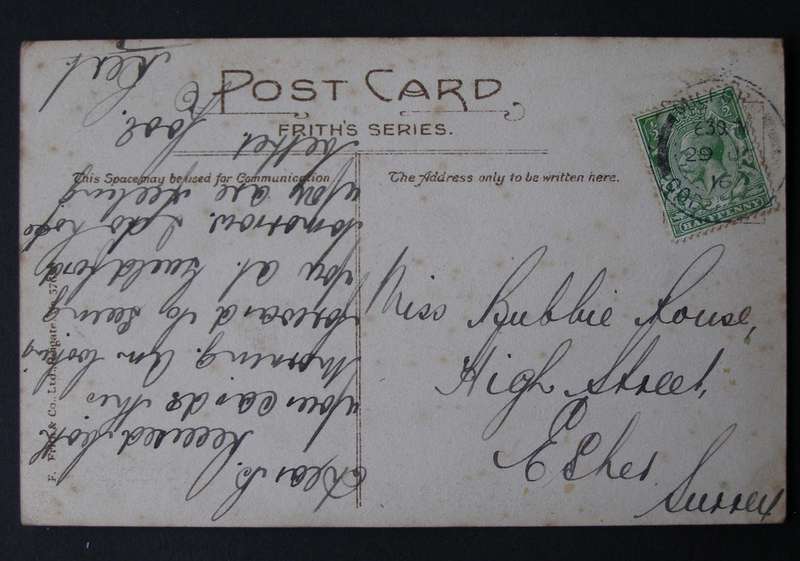 POST CARD
FRITH'S SERIES.
This Space may be used for Communication
The Address only to be written here.
Dear B.
Received both
your cards this
morning. Am looking
forward to seeing
you at Guildford
tomorrow. I do hope
you are feeling
better
Miss Bubbie Rouse,
High Street,
Esher
Surrey
F. Frith & Co., Ltd., Reigate
29
16